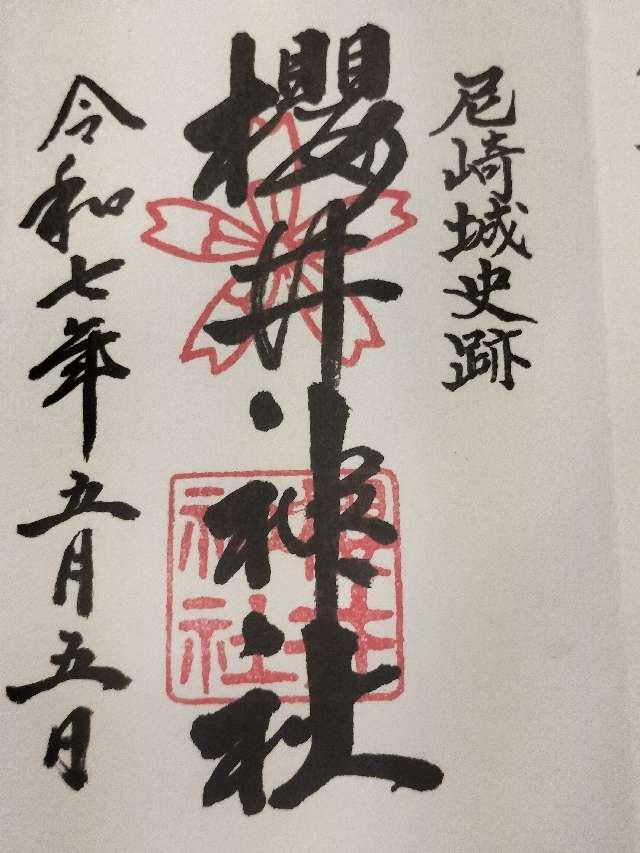 尼崎城史跡
櫻井神社
櫻井
神社
令和七年五月五日